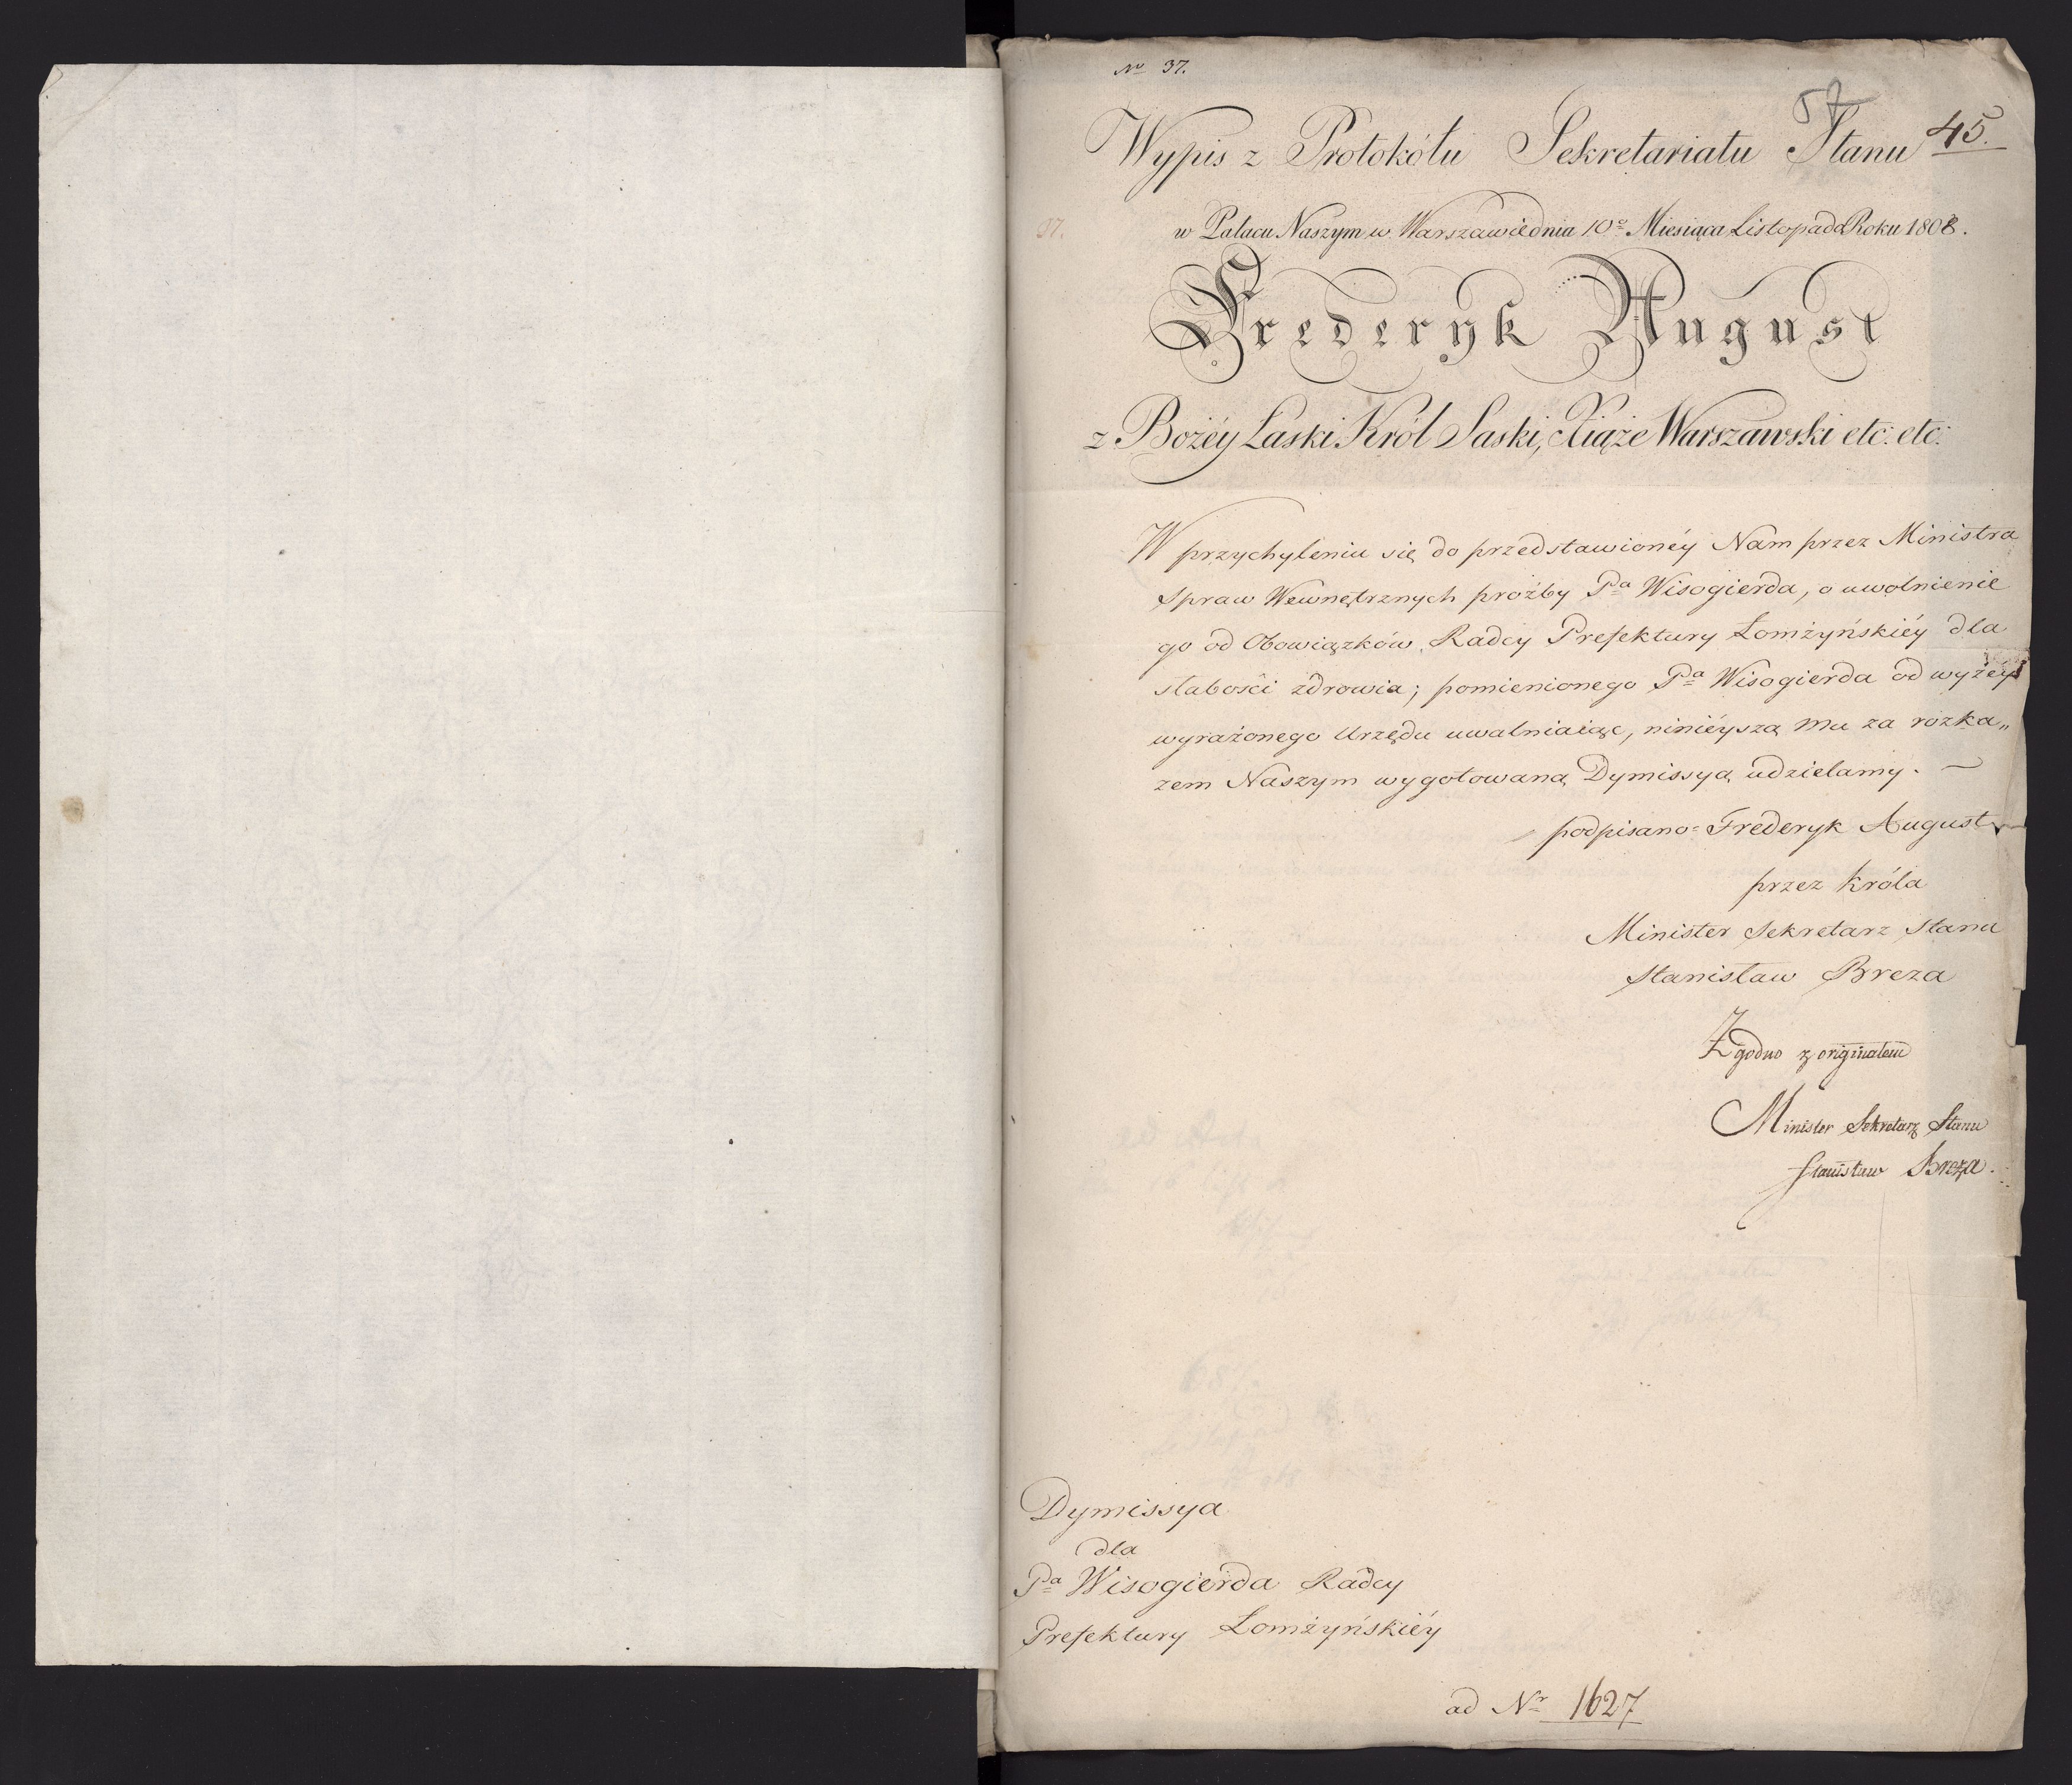 No 37.
57
Wypis z Protokółu Sekretariatu Stanu 45.
37.
w Pałacu Naszym w Warszawie dnia 10o Miesiąca Listopada Roku 1808.
Frederyk August
z Bożéy Łaski Król Saski, Xiąże Warszawski etc: etc:
W przychyleniu się do przedstawionéy Nam przez Ministra
Spraw Wewnętrznych prożby Pa Wisogierda, o uwolnienie
go od Obowiązków Radcy Prefektury Łomżyńskiéy dla
słabości zdrowia; pomienionego Pa Wisogierda od wyżey
wyrażonego Urzędu uwalniaiąc, ninieyszą Mu za rozka„
zem Naszym wygotowaną Dymissyą udzielamy. —
podpisano: Frederyk August
przez Króla
Minister Sekretarz Stanu
Stanisław Breza
Zgodno z originałem
Minister Sekretarz Stanu
Stanisław Breza.
Dymissya
dla
Pa Wisogierda Radcy
Prefektury Łomżyńskiéy
ad Nr 1627